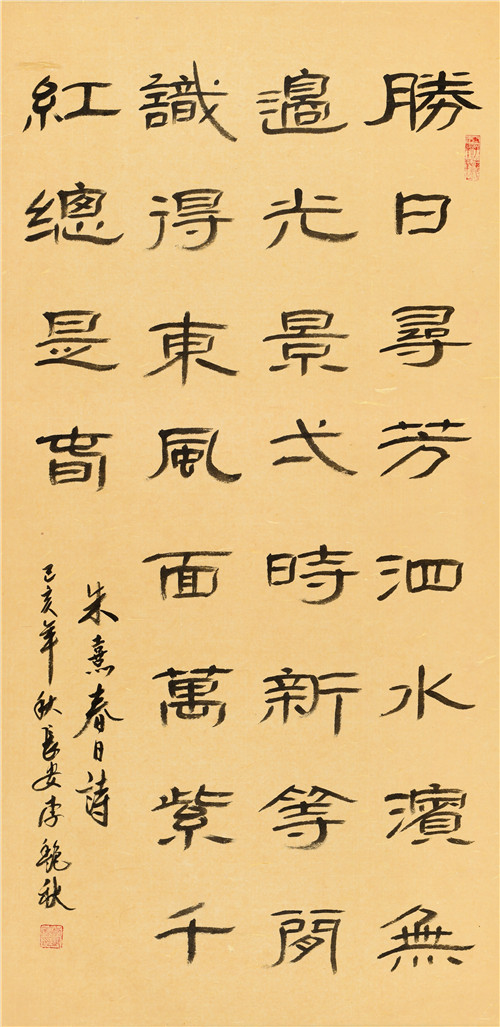 勝日尋芳泗水濱無
邊光景弌時新等閒
識得東風面萬紫千
紅總是旾
朱熹春日詩
己亥年秋長安李秋